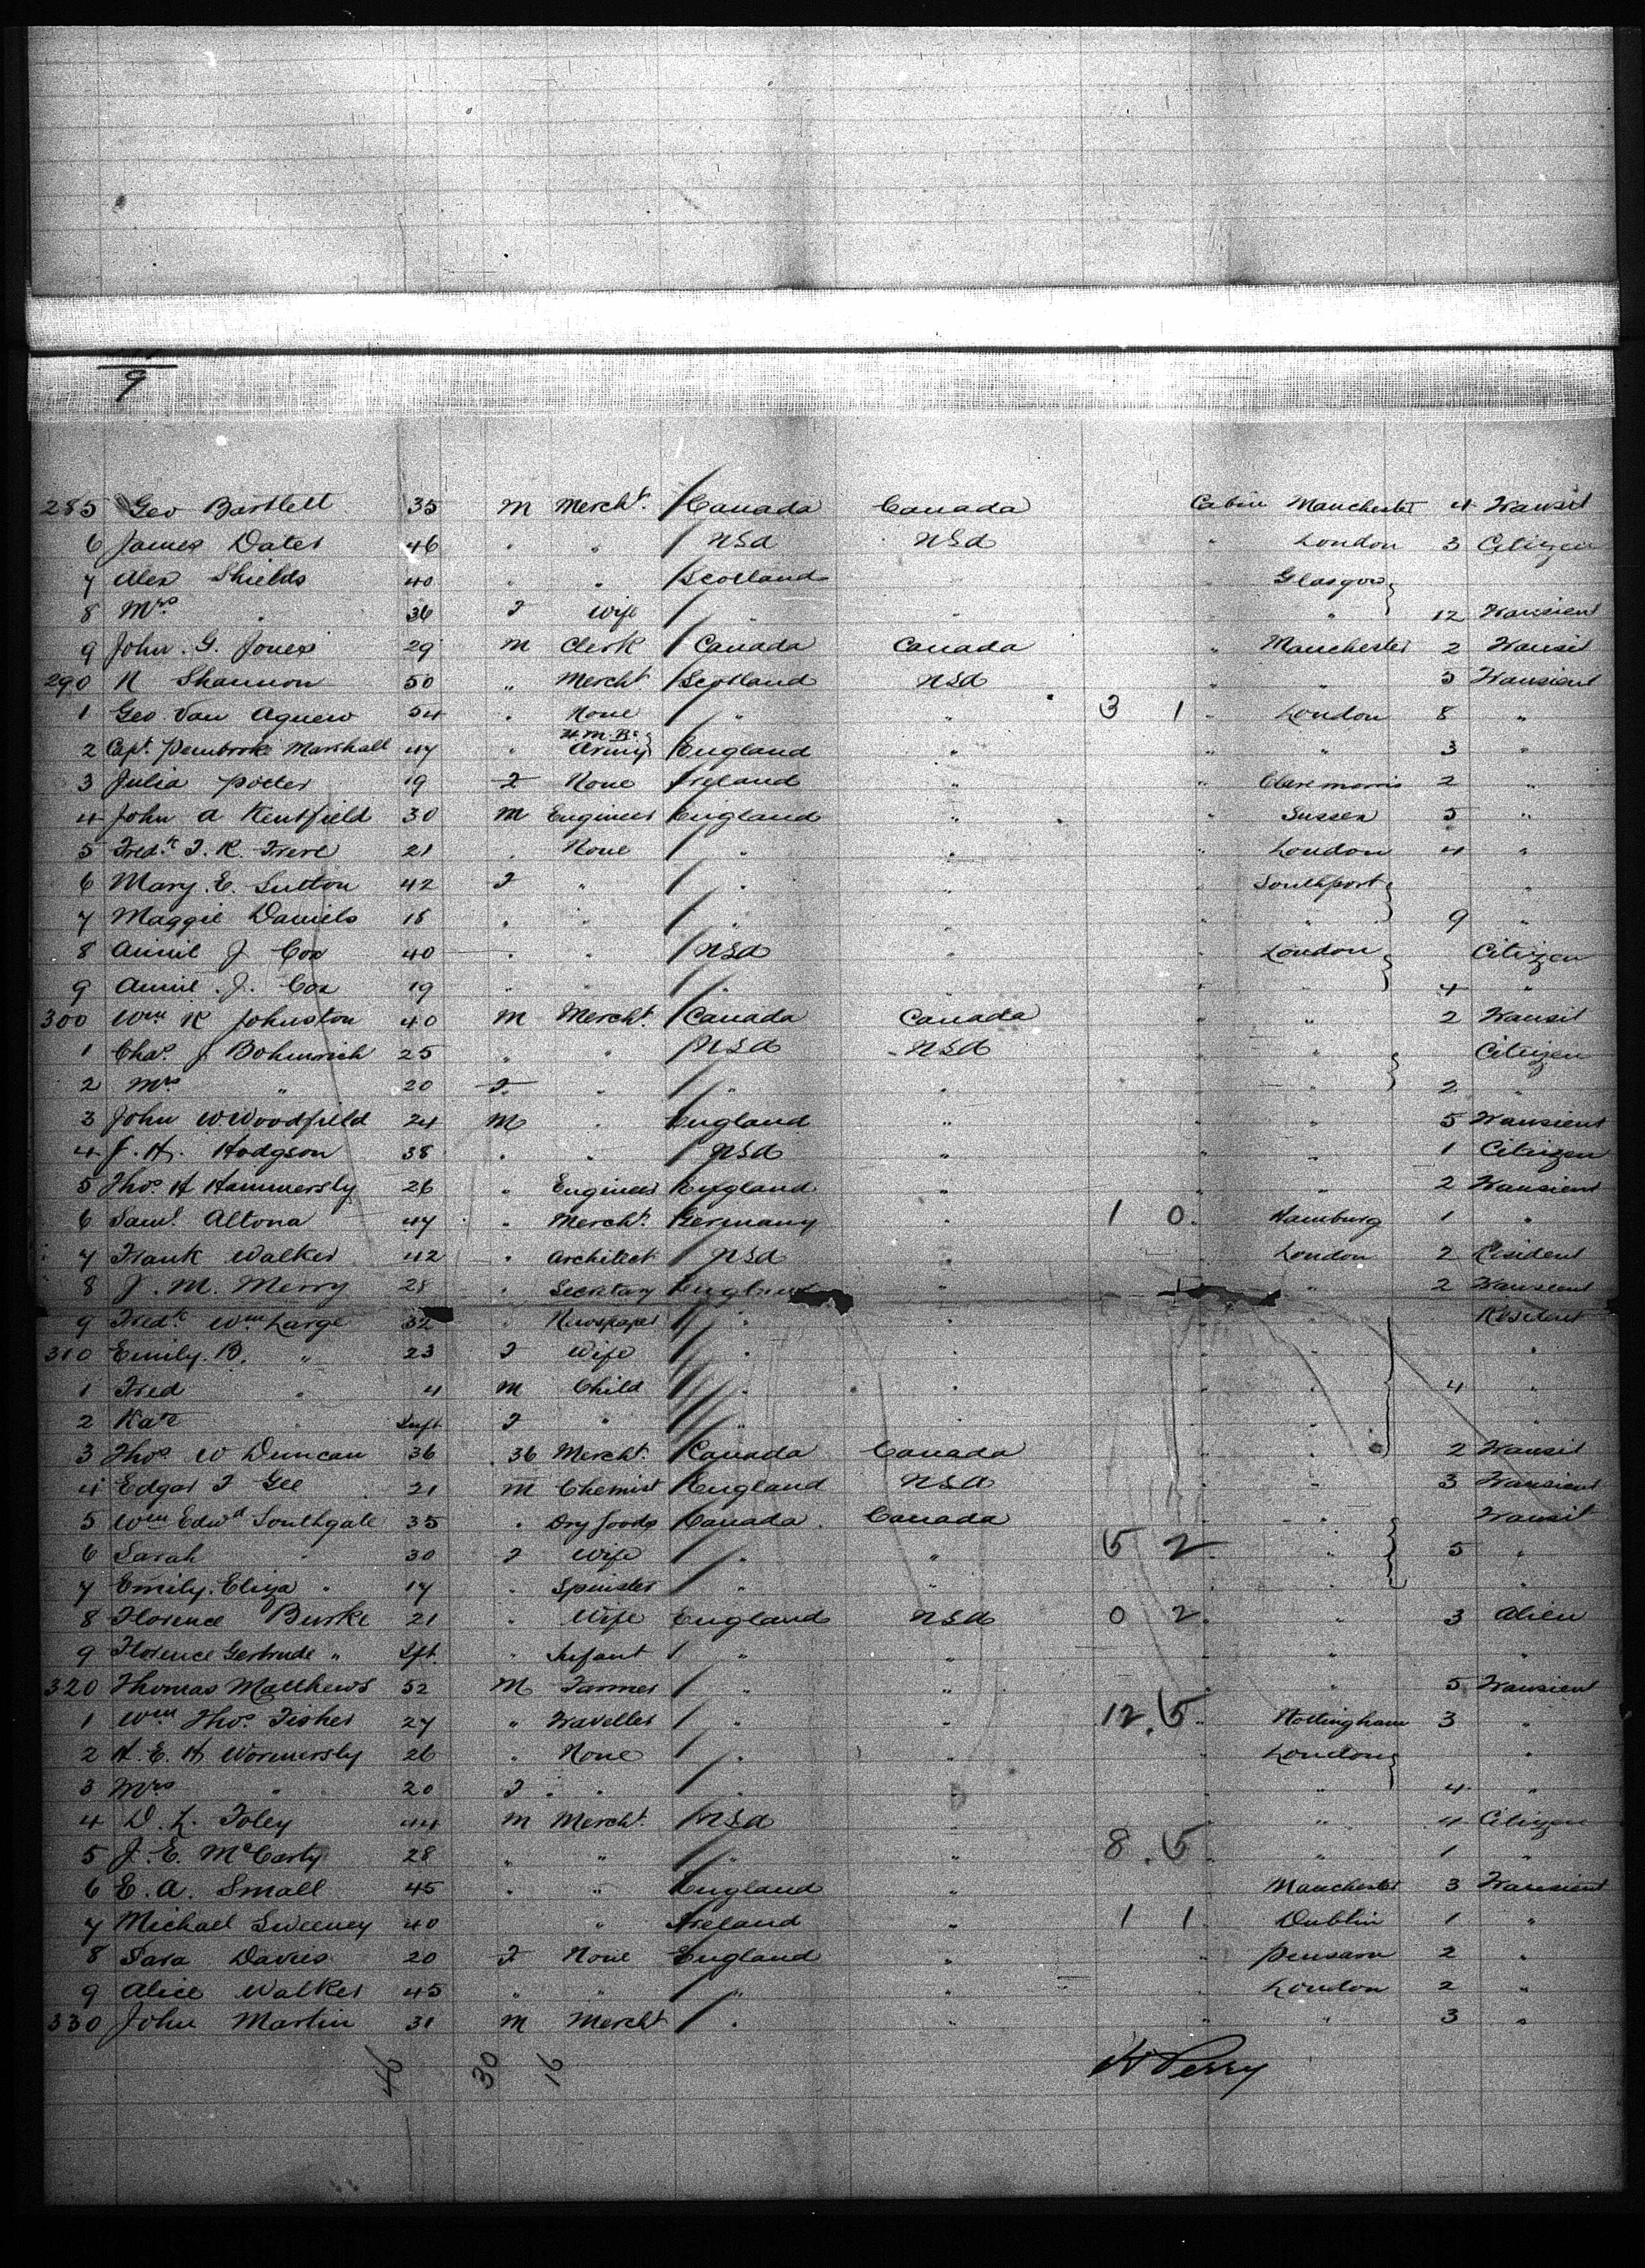 9
285 Geo Bartlett 35 M Mercht. Canada Canada Cabin Manchester 4 Transit
6 James Dates 46 " " USA USA " London 3 Citizen
7 Alex Shields 40 " " Scotland Glasgow
8 Mrs " 36 F Wife " " " 12 Transient
9 John. G. Jones 29 M Clerk Canada Canada " Manchester 2 Transit
290 N Shannon 50 " Mercht. Scotland USA " " 5 Transient
1 Geo. Van Agnew 54 " None " " 3 1 " London 8 "
2 Capt. Pembroke Marshall 47 " H.M.Bs. Army England " " " 3 "
3 Julia Potter 19 F None Ireland " " Claremorris 2 "
4 John A Kentfield 30 M Engineer England " " Sussex 5 "
5 Fredk. T. R. Frere 21 " None " " " London 4 "
6 Mary. E. Sutton 42 F " " " " Southport "
7 Maggie Daniels 18 " " " " " " 9 "
8 Annie J Cox 40 " " USA " " London Citizen
9 Annie. J. Cox 19 " " " " " " 4 "
300 Wm K Johnston 40 M Mercht. Canada Canada " " 2 Transit
1 Chas. J Bohmrich 25 " " USA USA " " Citizen
2 Mrs " 20 F " " " " " 2 "
3 John W. Woodfield 24 M " England " " " 5 Transient
4 J. H. Hodgson 38 " " USA " " " 1 Citizen
5 Thos. H Hammersly 26 " Engineer England " " " 2 Transient
6 Saml. Altona 47 " Mercht. Germany " 1 0 " Hamburg 1 "
7 Frank Walker 42 " Architect USA " " London 2 Resident
8 J. M. Merry 28 " Secretary England " " 2 Transient
9 Fredk. Wm Large 32 " Newspaper " " " " Resident
310 Emily. B. " 23 F Wife " " " " "
1 Fred " 4 M Child " " " " 4 "
2 Kate " Inft F " " " " " "
3 Thos W Duncan 36 36 Mercht. Canada Canada " " 2 Transit
4 Edgar F Gee 21 M Chemist England USA " " 3 Transient
5 Wm Edwd Southgate 35 " Dry Goods Canada Canada " " Transit
6 Sarah " 30 F Wife " " 5 2 " " 5 "
7 Emily. Eliza " 17 " Spinster " " " " "
8 Florence Burke 21 " Wife England USA 0 2 " " 3 Alien
9 Florence Gertrude " Ift. " Infant " " " " "
320 Thomas Matthews 52 M Farmer " " " " 5 Transient
1 Wm Thos. Fisher 27 " Traveller " " 12 5 " Nottingham 3 "
2 H. E. H Wormersly 26 " None " " " London "
3 Mrs " 20 F " " " " 4 "
4 D. L. Foley 44 M Mercht. USA " " 4 Citizen
5 J. E. McCarty 28 " " " " 8 5 " " 1 "
6 E. A. Small 45 " " England " Manchester 3 Transient
7 Michael Sweeney 40 " Ireland " 1 1 " Dublin 1 "
8 Sara Davies 20 F None England " " Pensarn 2 "
9 Alice Walker 45 " " " " London 2 "
330 John Martin 31 M Mercht " " " " 3 "
46 30 16
H Perry